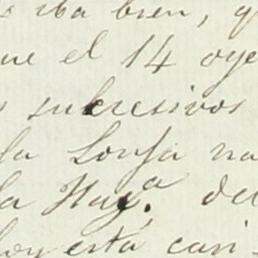 o iba bien, q
ue el 14 oye
s sucresivos
la Lonja na
la Haya. del
hoy está cari-